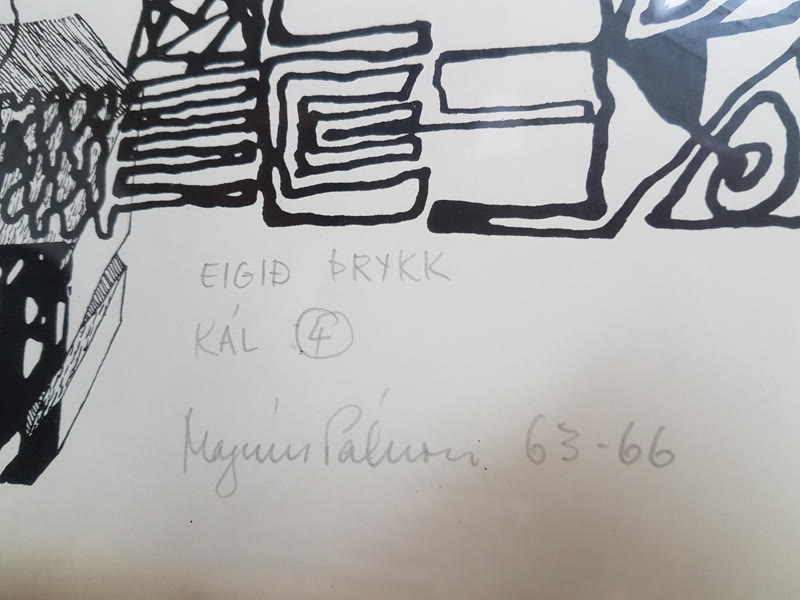 EIGIÐ ÞRYKK
KÁL 4
Magnús Pálsson 63-66